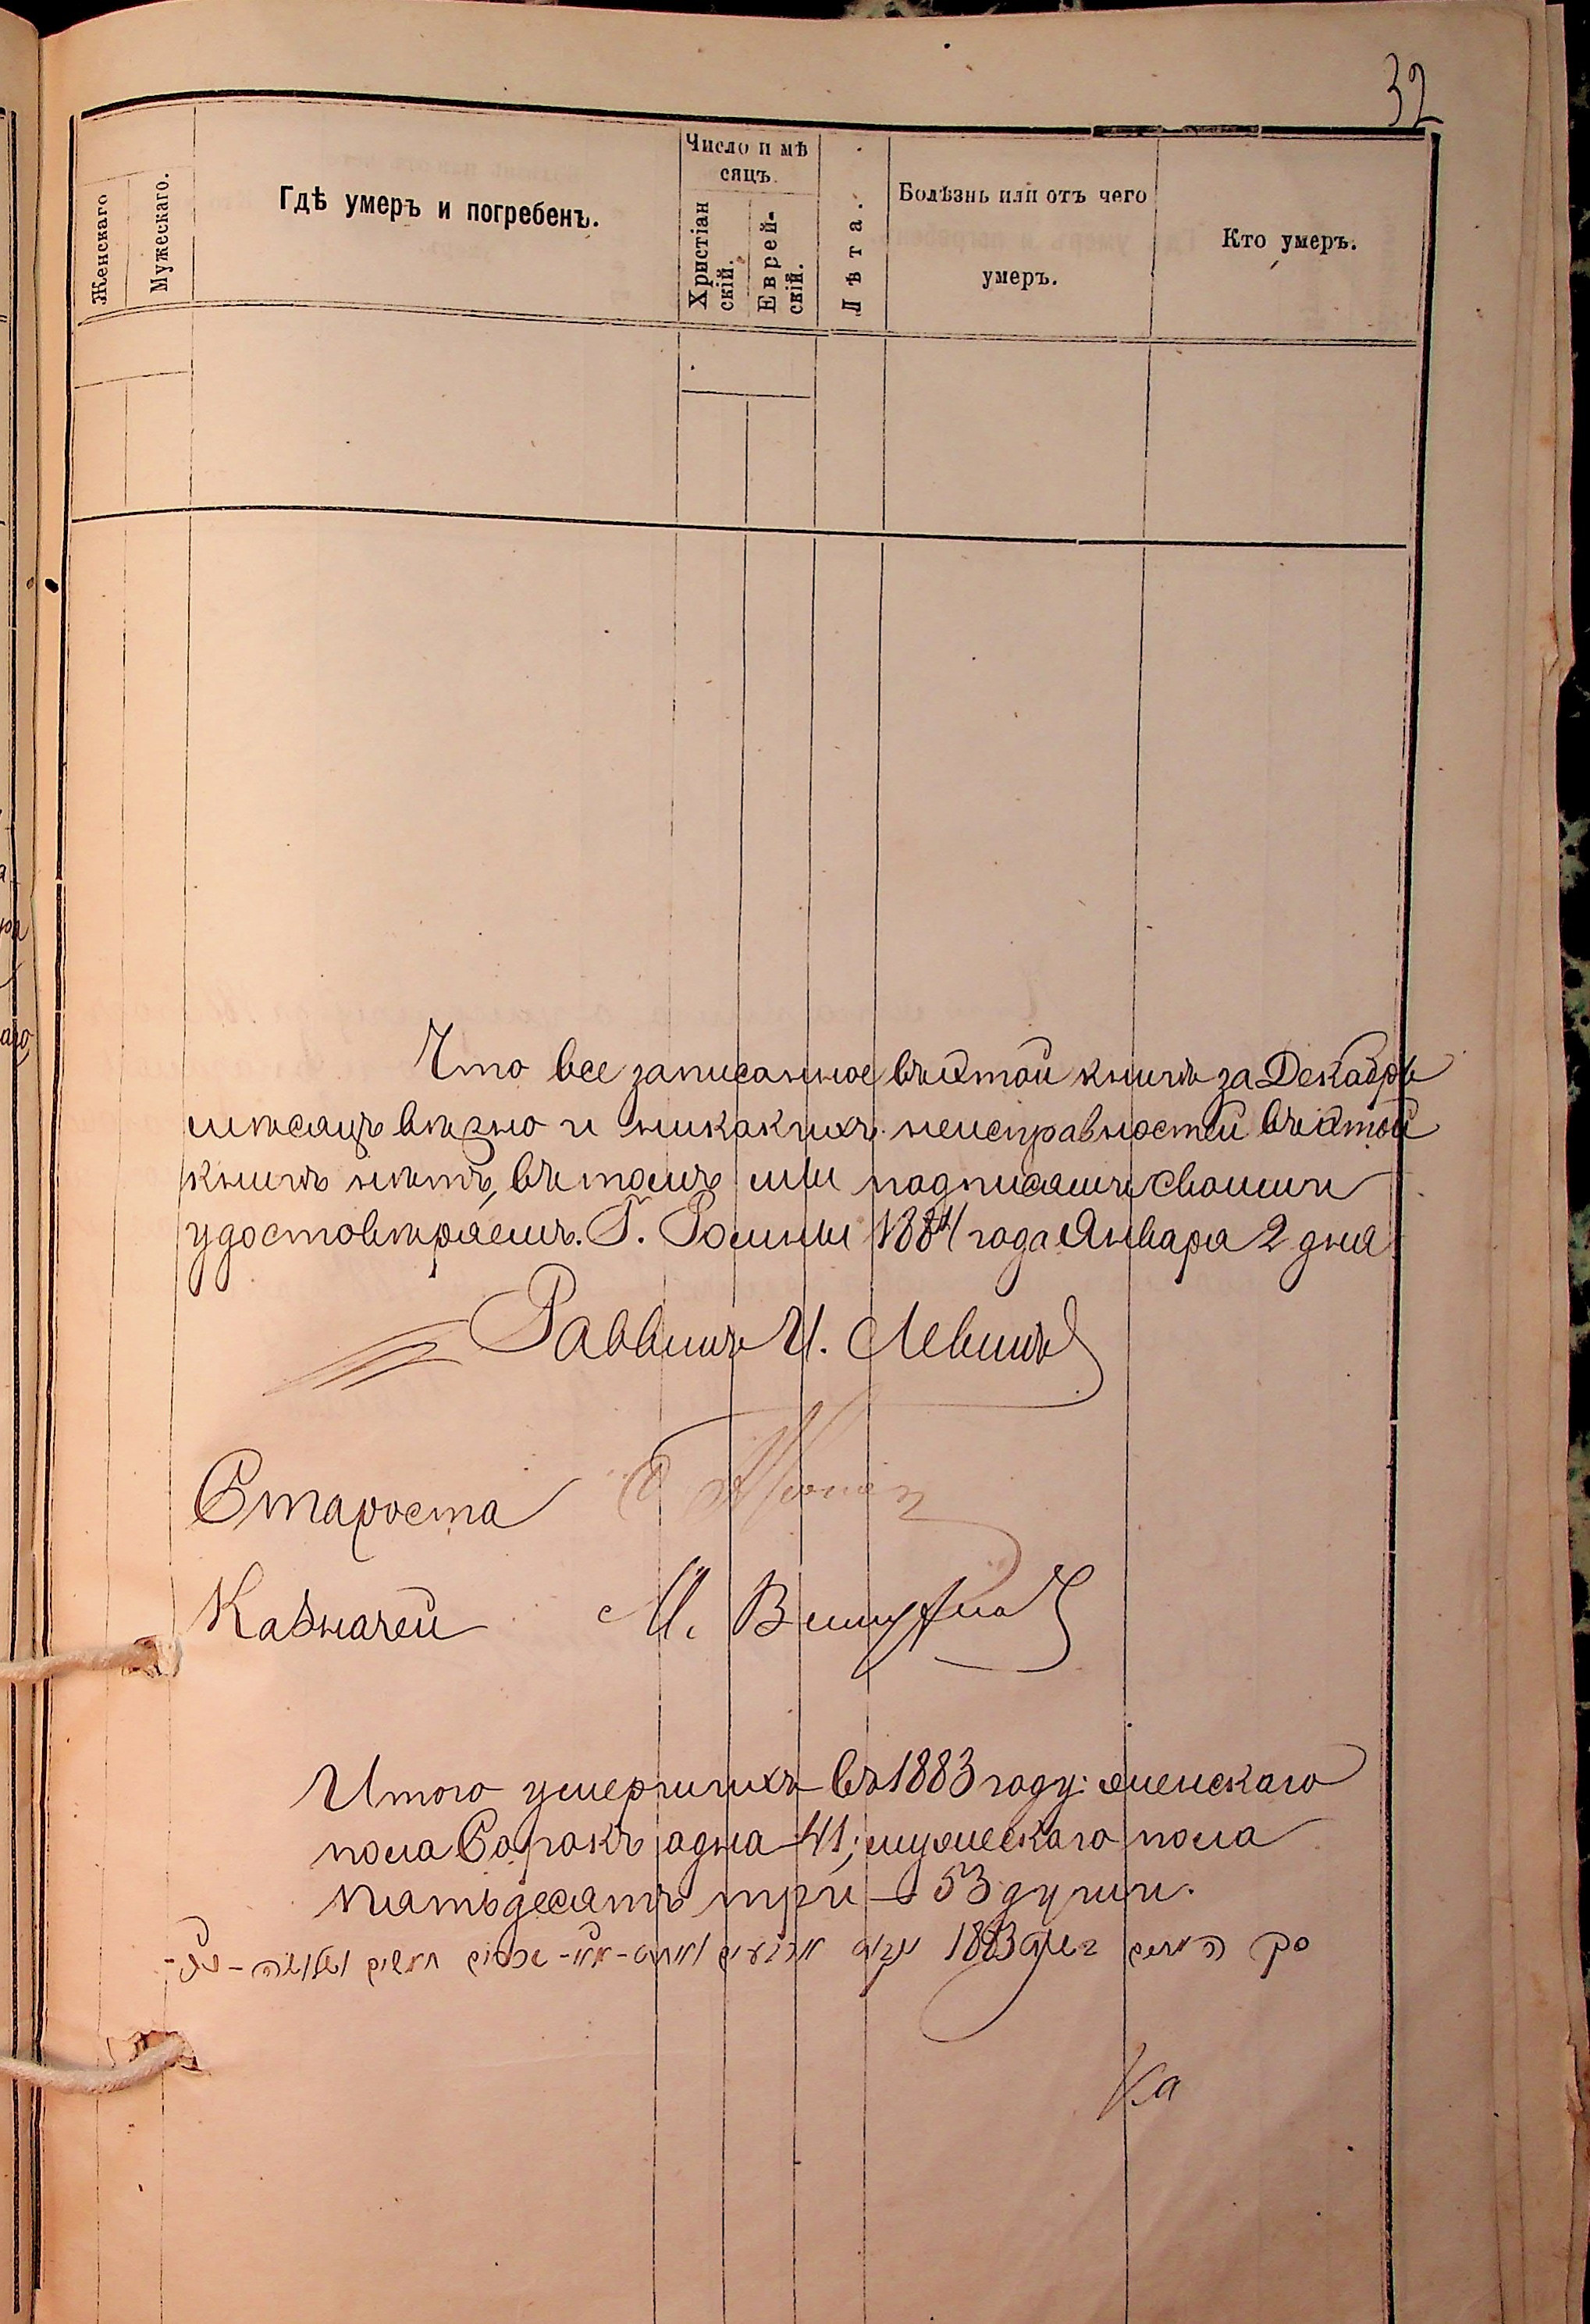 32
Женскаго
Мужескаго.
Гдѣ умеръ и погребенъ.
Число и мѣ
сяцъ.
Христіан
скій.
Еврей-
скій.
Лѣта.
Болѣзнь или отъ чего
умеръ.
Кто умеръ.
Что все записанное въ этой книгѣ за Декабрь
мѣсяцъ вѣрно и никакихъ неисправностей въ этой
книгѣ нѣтъ, въ томъ мы подписами своими
удостовѣряемъ. Г. Ромны 1884 года Января 2 дня
Раввинъ И. Левинъ
Староста
Казначей М.
Итого умершихъ въ 1883 году: женскаго
пола Сорокъ одна 41; мужескаго пола
пятьдесятъ три – 53 души.
1883
Ка